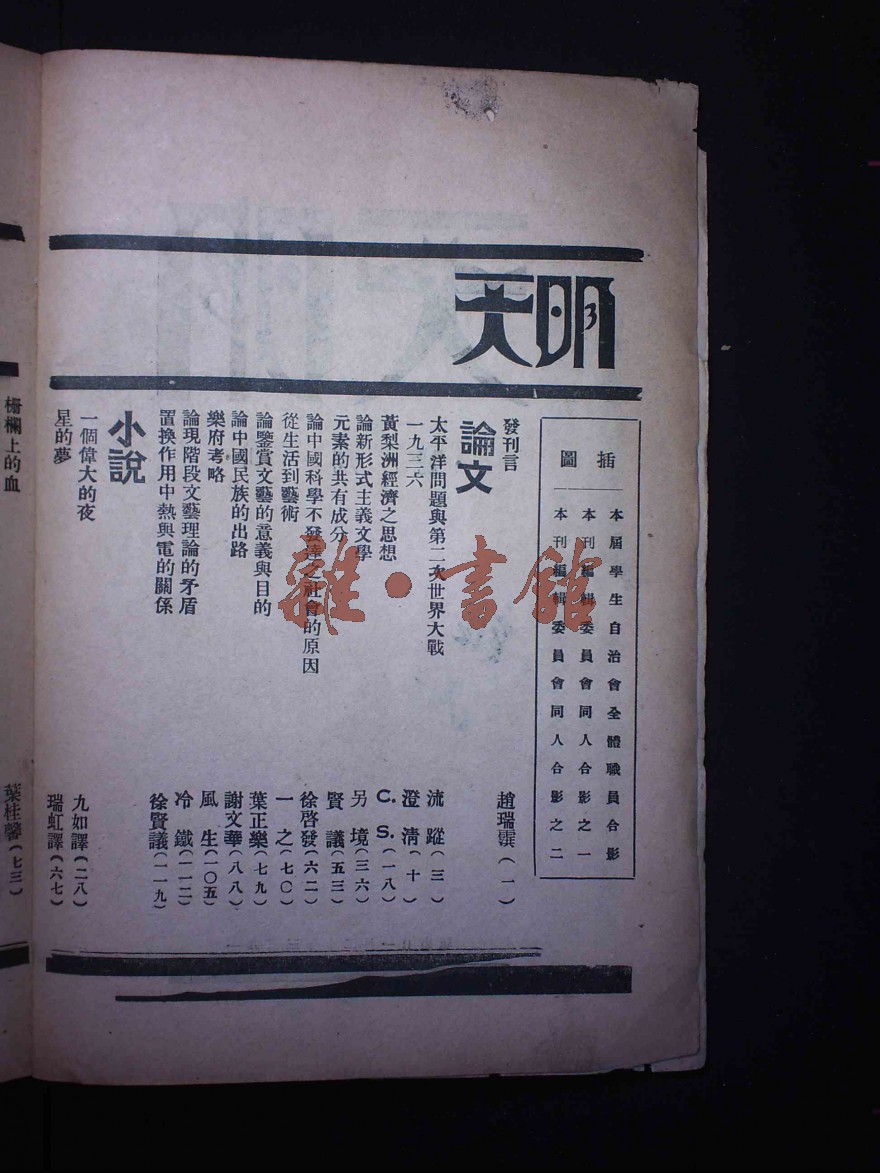 明天
插圖
本屆學生自治會全體職員合影
本刊編輯委員會同人合影之一
本刊編輯委員會同人合影之二
發刊言 趙瑞霟(一)
論文
太平洋問題與第二次世界大戰 流蹤(三)
一九三六 澄清(十)
黃梨洲經濟之思想 C. S.(一八)
論新形式主義文學 另境(三六)
元素的共有成分 賢議(五三)
論中國科學不發達之社會的原因 徐啓發(六二)
從生活到藝術 一之(七〇)
論鑒賞文藝的意義與目的 葉正樂(七九)
論中國民族的出路 謝文華(八八)
樂府考略 風生(一〇五)
論現階段文藝理論的矛盾 冷鐵(一一二)
置換作用中熱與電的關係 徐賢議(一一九)
小說
一個偉大的夜 九如譯(二八)
星的夢 瑞虹譯(六七)
柵欄上的血 葉桂馨(七三)
雜·書館